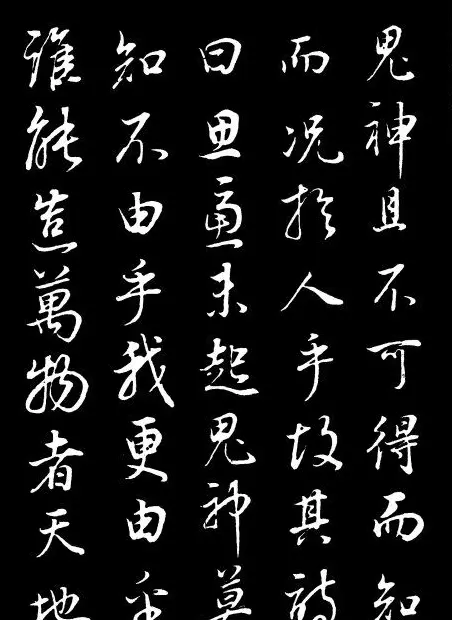 鬼神且不可得而知
而况於人乎故其詩
曰思慮未起鬼神莫
知不由乎我更由乎
誰能造萬物者天地